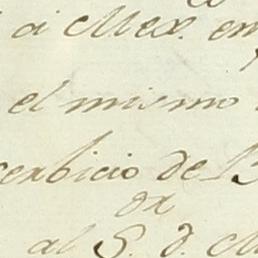 a Mex. en
el mismo
serbicio de B
al S. d. M